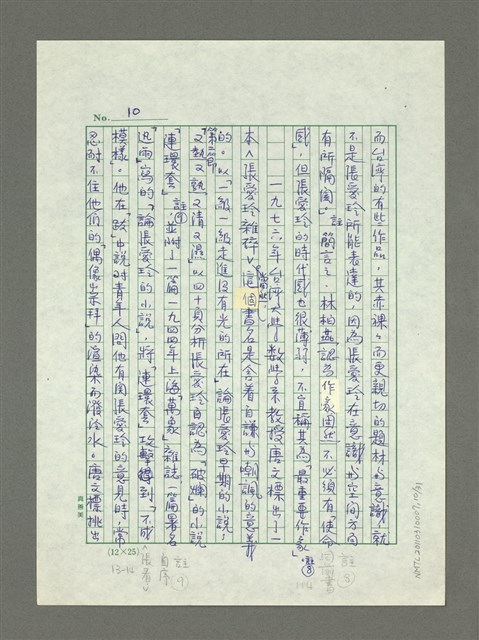 No. 10
而台灣的有些作品，其赤裸而更親切的題材與意識，就
不是張愛玲所能表達的，因為張愛玲在意識與空間方向
有所隔閡。註 簡言之，林柏燕認為作家固然不必須有「使命
感」，但張愛玲的時代感也很薄弱，不宜稱其為「最重要作家」註⑧
一九七六年台灣大學數學系教授唐文標出了一
本《張愛玲雜碎》，這個書名是含着自謙與嘲諷的意義
的。以「一級一級走進沒有光的所在」論張愛玲早期的小說，
第二節「又熱又熱又清又濕」以四十頁分析張愛玲自認為破爛的小說
「連環套」註⑨，並附了一篇一九四四年上海「萬象」雜誌一篇署名
迅雨寫的「論張愛玲的小說」，將「連環套」攻擊得到「不成
模樣」。他在「跋」中說對青年人問他有關張愛玲的意見時，常
忍耐不住他們的「偶像崇拜」的渲染而潑冷水。唐文標挑出
(12×25)
註⑧
同前書
註⑨
自序
《張看》
13-14
NMTL20110310007, 10/21